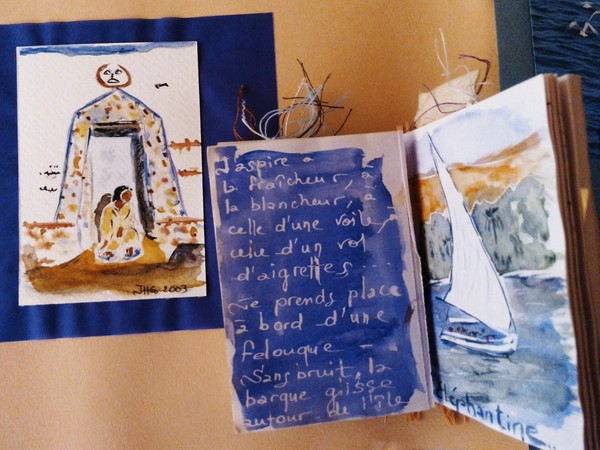 JHG 2003
J'aspire à
la fraîcheur, à
la blancheur, à
celle d'une voile,
celle d'un vol
d'aigrettes ...
Je prends place
à bord d'une
felouque -
Sans bruit, la
barque glisse
autour de l'île
éléphantine...